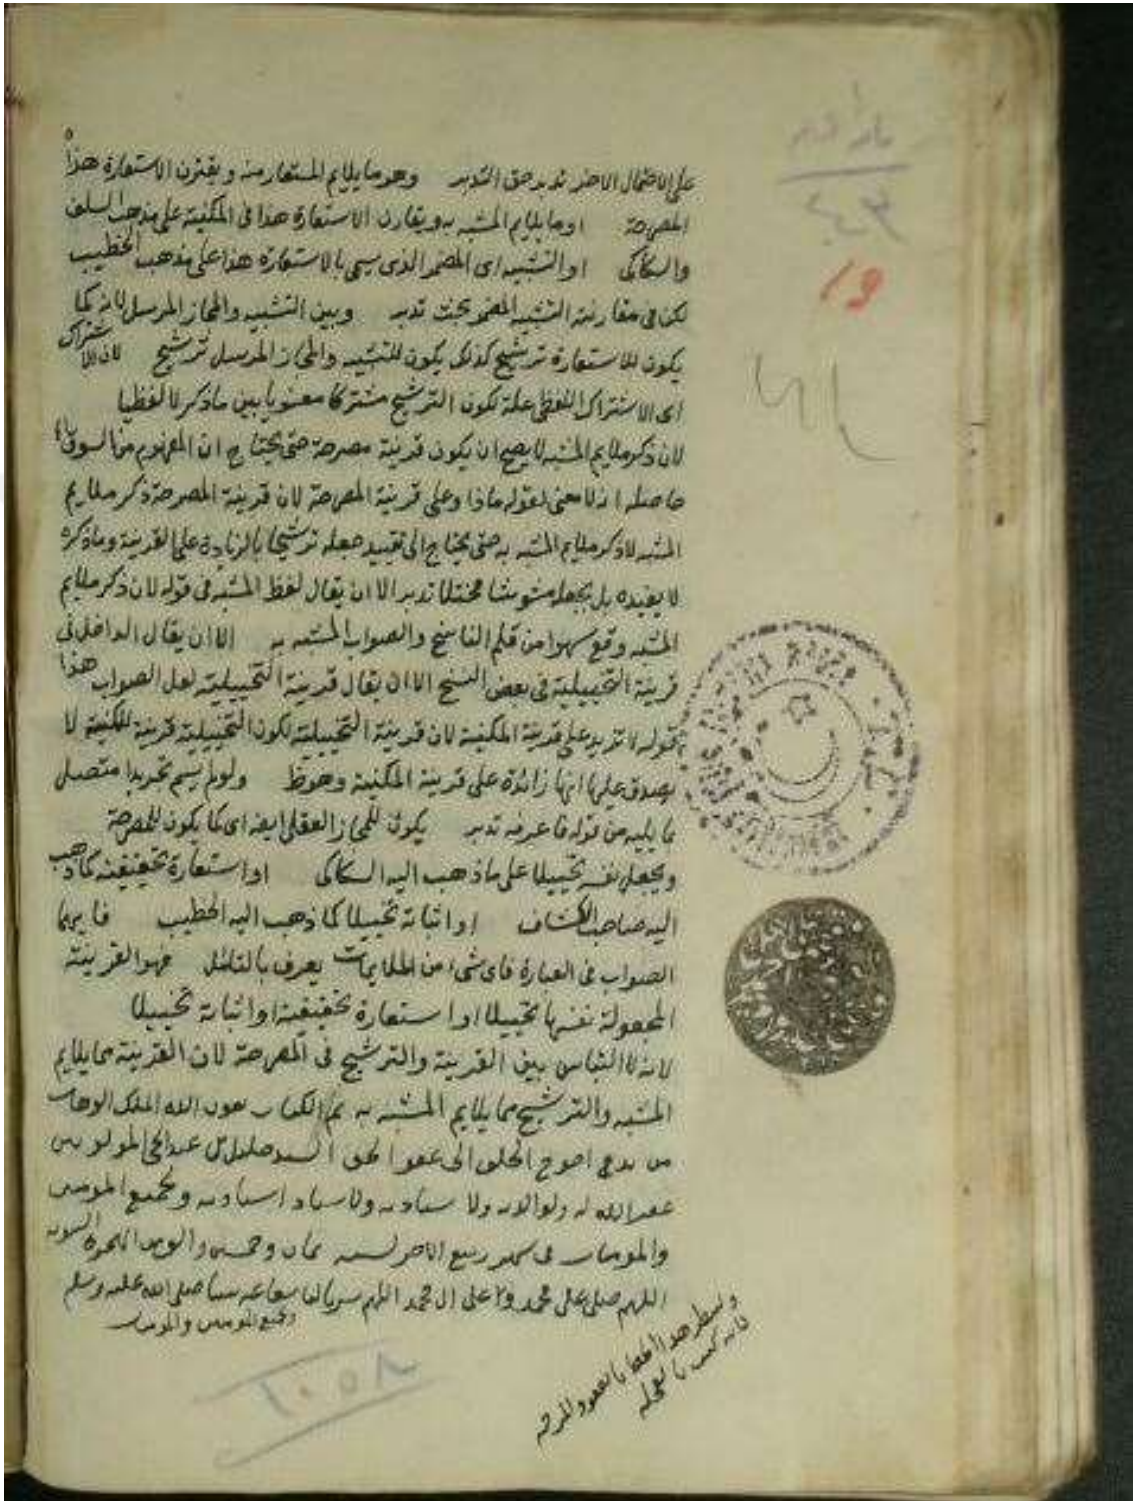 على الاحتمال الاخر تدبر حق التدبر وهو ما يلايم المستعار منه ويقترن الاستعارة هذا
المصرحة او ما يلايم المشبه به ويقارن الاستعارة هذا فى المكنية على مذهب السلف
والسكاكى او التشبيه اى المضمر الذى يسمى بالاستعارة هذا على مذهب الخطيب
لكن فى مقارنته التشبيه المضمر بحث تدبر وبين التشبيه والمجاز المرسل لانه كما
يكون للاستعارة ترشيح كذلك يكون للتشبيه والمجاز المرسل ترشيح لان الاشتراك
اى الاشتراك اللفظى علة لكون الترشيح مشتركا معنويا بين ما ذكر لا لفظيا
لان ذكر ملايم المشبه لا يصح ان يكون قرينة مصرحة حتى يحتاج ان المفهوم من السوق
حاصله انه لا معنى لقوله ماذا وعلى قرينة المصرحة لان قرينة المصرحة ذكر ملايم
المشبه لا ذكر ملايم المشبه به حتى يحتاج الى تقييد جعله ترشيحا بالزيادة على القرينة وما ذكره
لا يفيده بل يجعله مشوشا مختلا تدبر الا ان يقال لفظ المشبه فى قوله لان ذكر ملايم
المشبه وقع سهوا من قلم الناسخ والصواب المشبه به الا ان يقال الداخل فى
قرينة التخييلية فى بعض النسخ الا ان يقال قرينة التخييلية لعل الصواب هذا
بقوله لا تزيد على قرينة المكنية لان قرينة التخييلية لكون التخييلية قرينة للمكنية لا
يصدق عليها انها زائدة على قرينة المكنية وهو ظ ولو لم يسم تجريدا متصل
بما يليه من قوله فاعرفه تدبر يكون للمجاز العقلى ايضا اى كما يكون للمصرحة
ويجعل نفسه تخييلا على ما ذهب اليه السكاكى او استعارة تحقيقية كما ذهب
اليه صاحب الكشاف او اثباته تخييلا كما ذهب اليه الخطيب فايهما
الصواب فى العبارة فاى شىء من الملايمات يعرف بالتأمل فهو القرينة
المجعولة نفسها تخييلا او استعارة تحقيقية او اثباته تخييلا
لانه لا التباس بين القرينة والترشيح فى المصرحة لان القرينة مما يلايم
المشبه والترشيح مما يلايم المشبه به تم الكتاب بعون الله الملك الوهاب
من يدى احوج الخلق الى عفو الحق السيد خليل بن عبد الحى المولو
غفر الله له ولوالديه ولاستاديه ولاستاد استاديه ولجميع المومنين
والمومنات فى شهر ربيع الاخر لسنة ثمان وخمسين والف من الهجرة النبوية
اللهم صلى على محمد وعلى ال محمد اللهم شفاعة نبينا صلى الله عليه وسلم
وجميع المومنين والمومنات
هذا الخط بالعفو
فانه كتب بالعجلة
١٠٥٨